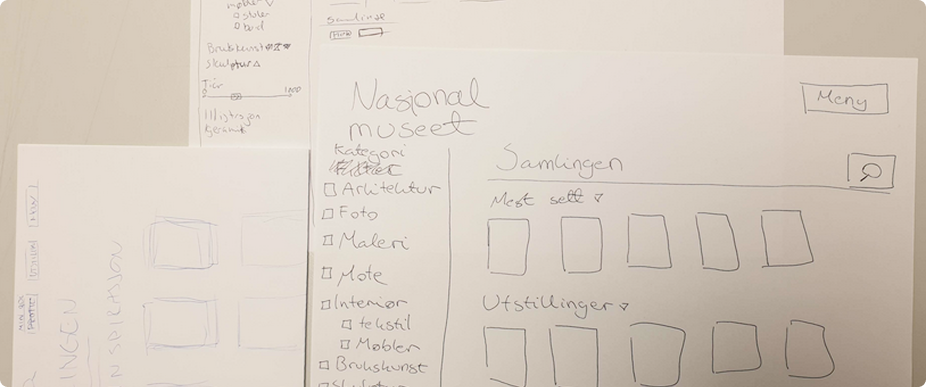 møbler
stoler
bord
Brukskunst
Skulptur
Tid
0 1000
Illustrasjon
Keramikk
Samlinge
Nasjonal
museet
Meny
Kategori
Arkitektur
Foto
Maleri
Mote
Interiør
tekstil
Møbler
Brukskunst
Skulptur
Samlingen
Mest sett
Utstillinger
INGEN
NSPIRASJON